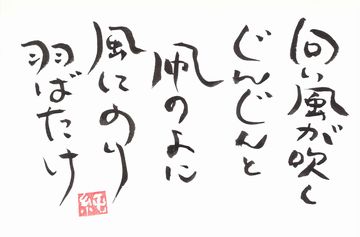 向い風が吹く
じんじんと
凧のよに
風にのり
羽ばたけ